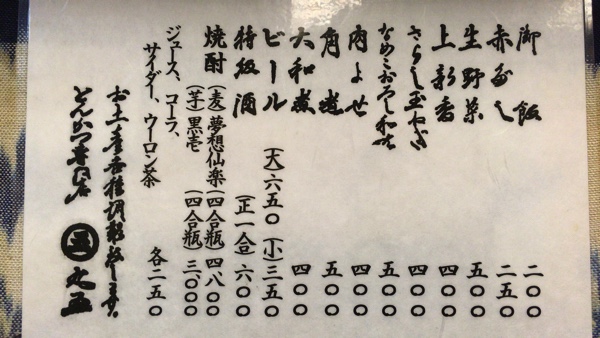 御飯 二〇〇
赤だし 二五〇
生野菜 五〇〇
上新香 四〇〇
さらし玉ねぎ 四〇〇
なめこおろし和え 五〇〇
肉よせ 四〇〇
角煮 五〇〇
大和煮 四〇〇
ビール (大)六五〇 (小)三五〇
特級酒 (正一合)六〇〇
焼酎 (麦)夢想仙楽(四合瓶)四八〇〇
(芋)黒壱 (四合瓶)三〇〇〇
ジュース、コーラ、
サイダー、ウーロン茶 各二五〇
お土産各種調製致します。
とんかつ専門店 五 丸五